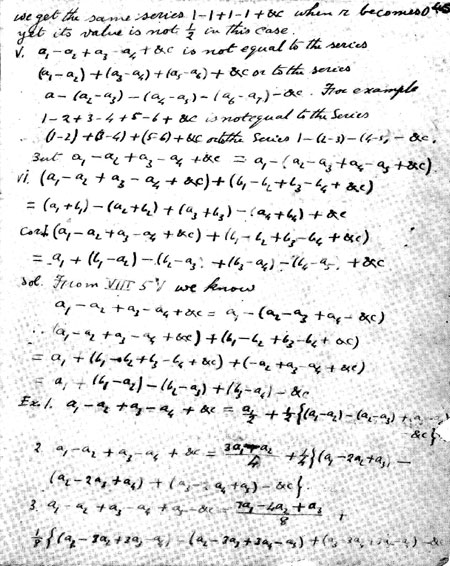 we get the same series 1-1+1-1+&c when r becomes 0
yet its value is not ½ in this case.
V. a₁-a₂+a₃-a₄+&c is not equal to the series
(a₁-a₂)+(a₃-a₄)+(a₅-a₆)+&c or to the series
a-(a₂-a₃)-(a₄-a₅)-(a₆-a₇)-&c. For example
1-2+3-4+5-6+&c is not equal to the series
(1-2)+(3-4)+(5-6)+&c or to the series 1-(2-3)-(4-5)-&c.
But a₁-a₂+a₃-a₄+&c = a₁-(a₂-a₃+a₄-a₅+&c).
vi. (a₁-a₂+a₃-a₄+&c)+(b₁-b₂+b₃-b₄+&c)
= (a₁+b₁)-(a₂+b₂)+(a₃+b₃)-(a₄+b₄)+&c
Cor. (a₁-a₂+a₃-a₄+&c)+(b₁-b₂+b₃-b₄+&c)
= a₁+(b₁-a₂)-(b₂-a₃)+(b₃-a₄)-(b₄-a₅)+&c
Sol. From VIII 5 V we know
a₁-a₂+a₃-a₄+&c = a₁-(a₂-a₃+a₄-&c)
∴ (a₁-a₂+a₃-a₄+&c)+(b₁-b₂+b₃-b₄+&c)
= a₁+(b₁-b₂+b₃-b₄+&c)+(-a₂+a₃-a₄+&c)
= a₁+(b₁-a₂)-(b₂-a₃)+(b₃-a₄)-&c
Ex.1. a₁-a₂+a₃-a₄+&c = a₁/2 + ½{(a₁-a₂)-(a₂-a₃)+(a₃-a₄)-
&c}.
2. a₁-a₂+a₃-a₄+&c = (3a₁-a₂)/4 + ¼{(a₁-2a₂+a₃)-
(a₂-2a₃+a₄)+(a₃-2a₄+a₅)-&c}.
3. a₁-a₂+a₃-a₄+a₅-&c = (7a₁-4a₂+a₃)/8 +
⅛{(a₁-3a₂+3a₃-a₄)-(a₂-3a₃+3a₄-a₅)+(a₃-3a₄+3a₅-a₆)-&c